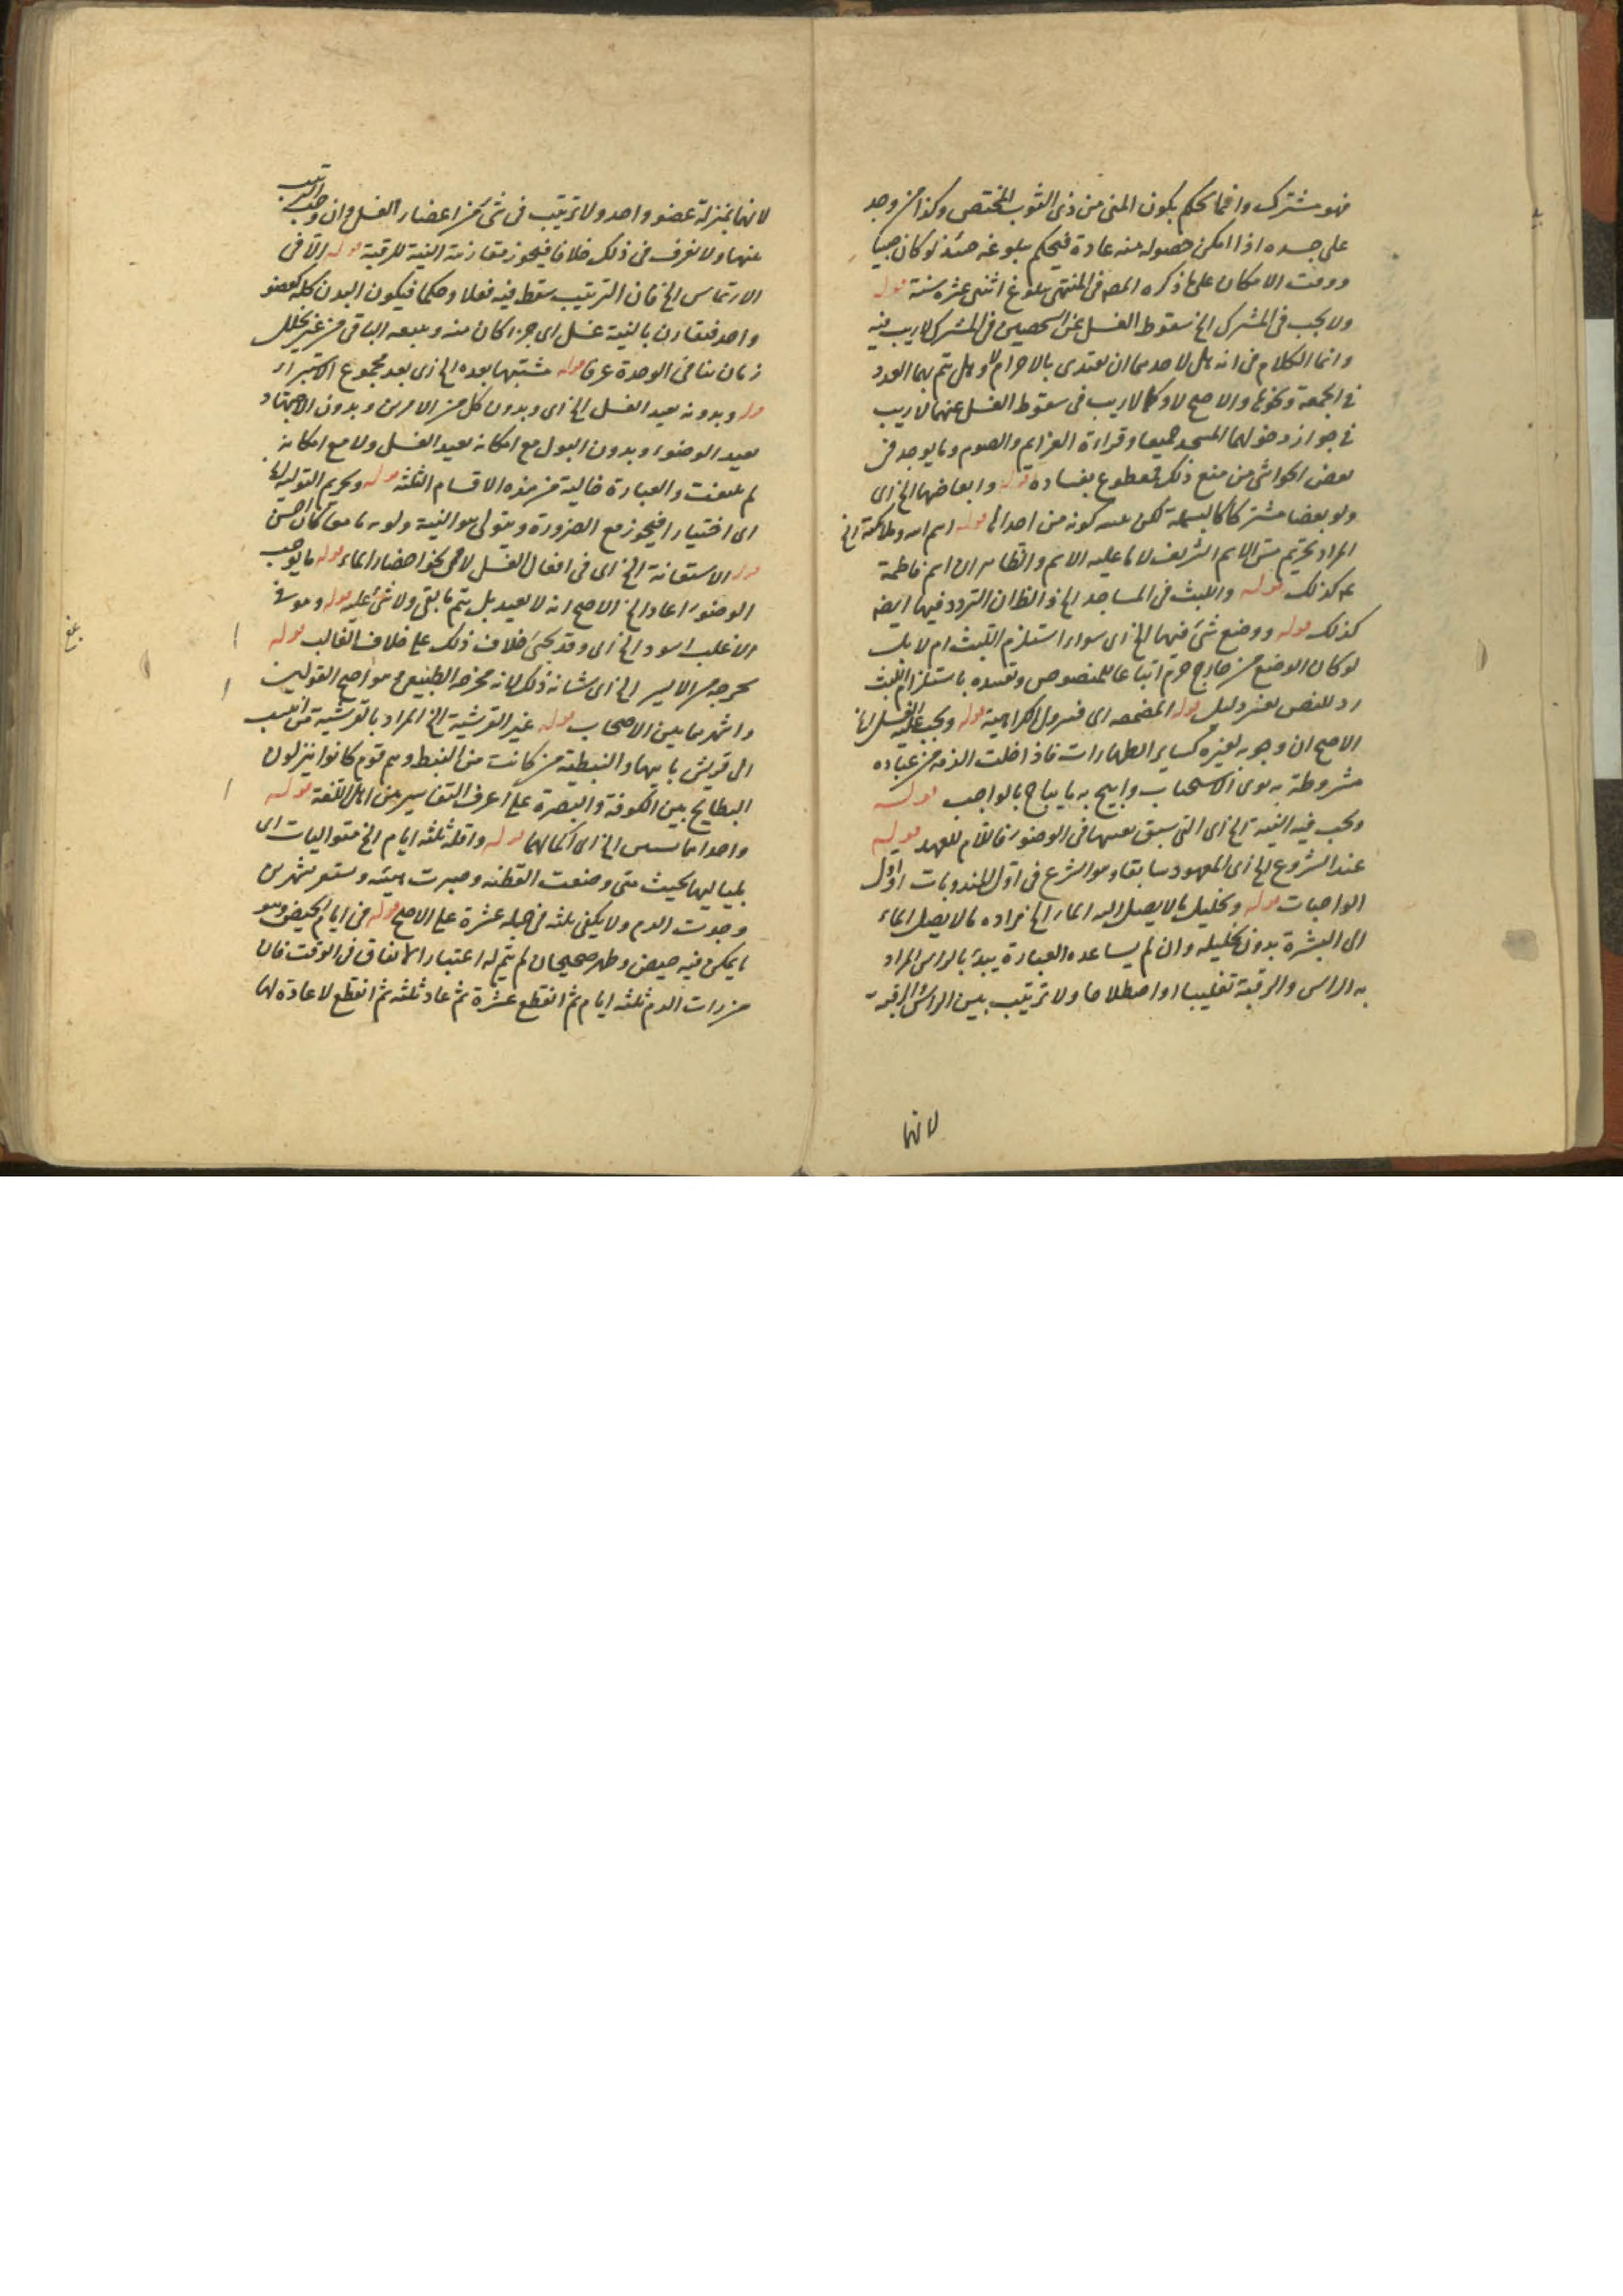 فهو مشترك وانما يحكم بكون المنى من ذى الثوب المختص وكذا من وجد
على جسده اذا امكن حصوله منه عادة فيحكم ببلوغه حينئذ لو كان صبيا
ووقت الامكان على ما ذكره المصه فى المنتهى بلوغ اثنى عشره سنة قوله
ولا يجب فى المشترك الخ سقوط الغسل عن الشخصين فى المشترك لا ريب فيه
وانما الكلام فى انه هل لاحدهما ان يقتدى بالاخر ام لا وهل يتم بهما العدد
فى الجمعة ونحوها والاصح لا وكما لا ريب فى سقوط الغسل عنهما لا ريب
فى جواز دخولهما المسجد جميعا وقراءة العزايم والصوم وما يوجد فى
بعض الحواشى من منع ذلك فمقطوع بفساده قوله وابعاضها الخ اى
ولو بعضا مشتركا كالبسملة لكن كونه من احداها قوله اسم الله وملائكته الخ
المراد تحريم مس الاسم الشريف لا ما عليه الاسم والظاهر ان اسم فاطمة
ع كذلك قوله واللبث فى المساجد الخ والظ ان التردد فيها ايضه
كذلك قوله ووضع شئ فيها الخ اى سواء استلزم اللبث ام لا بل
لو كان الوضع من خارج حرم اتباعا للمنصوص وتقييده باستلزام اللبث
رد للنص بغير دليل قوله المضمضه اى فتزول الكراهية قوله ويجب عليه الغسل الخ
الاصح ان وجوبه لغيره كساير الطهارات فاذا خلت الذمه من عبادة
مشروطة به نوى الاستحباب وابيح به ما يباح بالواجب قوله
ويجب فيه النية الخ اى التى سبق تعيينها فى الوضوء فاللام للعهد قوله
عند الشروع الخ اى المعهود سابقا وهو الشرع فى اول المندوبات او اول
الواجبات قوله وتخليل ما لا يصل اليه الماء الخ مراده ما لا يصل الماء
الى البشرة بدون تخليله وان لم يساعده العبارة يبدء بالراس المراد
به الراس والرقبة تغليبا او اصطلاحا ولا ترتيب بين الراس والرقبة
لانها
لانها بمنزلة عضو واحد ولا ترتيب فى شئ من اعضاء الغسل وان وجب الترتيب
عنها ولا نعرف فى ذلك خلافا فيجوز مقارنة النية للرقبة قوله الا فى
الارتماس الخ فان الترتيب سقط فيه فعلا وحكما فيكون البدن كله كعضو
واحد فيقارن بالنية غسل اى جزء كان منه ويتبعه الباقى من غير تخلل
زمان ينافى الوحدة عرفا قوله مشتبها بعده الخ اى بعد مجموع الاستبراء
قوله وبدونه يعيد الغسل الخ اى وبدون كل من الامرين وبدون الاجتهاد
يعيد الوضوء وبدون البول مع امكانه يعيد الغسل ولا مع امكانه
لم يلتفت والعبارة خالية من هذه الاقسام الثلثه قوله وتحريم التولية الخ
اى اختيارا فيجوز مع الضرورة ويتولى هو النية ولو نويا معا كان احسن
قوله الاستعانة الخ اى فى افعال الغسل لا فى نحو احضار الماء قوله ما يوجب
الوضوء اعاد الخ الاصح انه لا يعيد بل يتم ما بقى ولا شئ عليه قوله وهو فى
الاغلب اسود الخ اى وقد يجئ خلاف ذلك على خلاف الغالب قوله
يخرج من الايسر الخ اى شانه ذلك لانه مخرجه الطبيعى هو اصح القولين
واشهرهما بين الاصحاب قوله غير القرشية الخ المراد بالقرشية من انتسب
الى قريش بابيها والنبطية من كانت من النبط وهم قوم كانوا ينزلون
البطايح بين الكوفة والبصرة على اعرف التفاسير من اهل اللغة قوله
واحداهما سس الخ اى اكمالهما قوله واقله ثلثه ايام الخ متواليات اى
بلياليها بحيث متى وضعت القطنه وصبرت هنيئه
وجدت الدم ولا يكفى ثلثه فى جمله عشرة على الاصح قوله فى ايام الحيض وهو
ما يمكن فيه حيض وطهر صحيحان لم يتم له اعتبار الاتفاق فى الوقت فان
من رات الدم ثلثه ايام ثم انقطع عشرة ثم عاد ثلثه ثم انقطع لا عادة لها